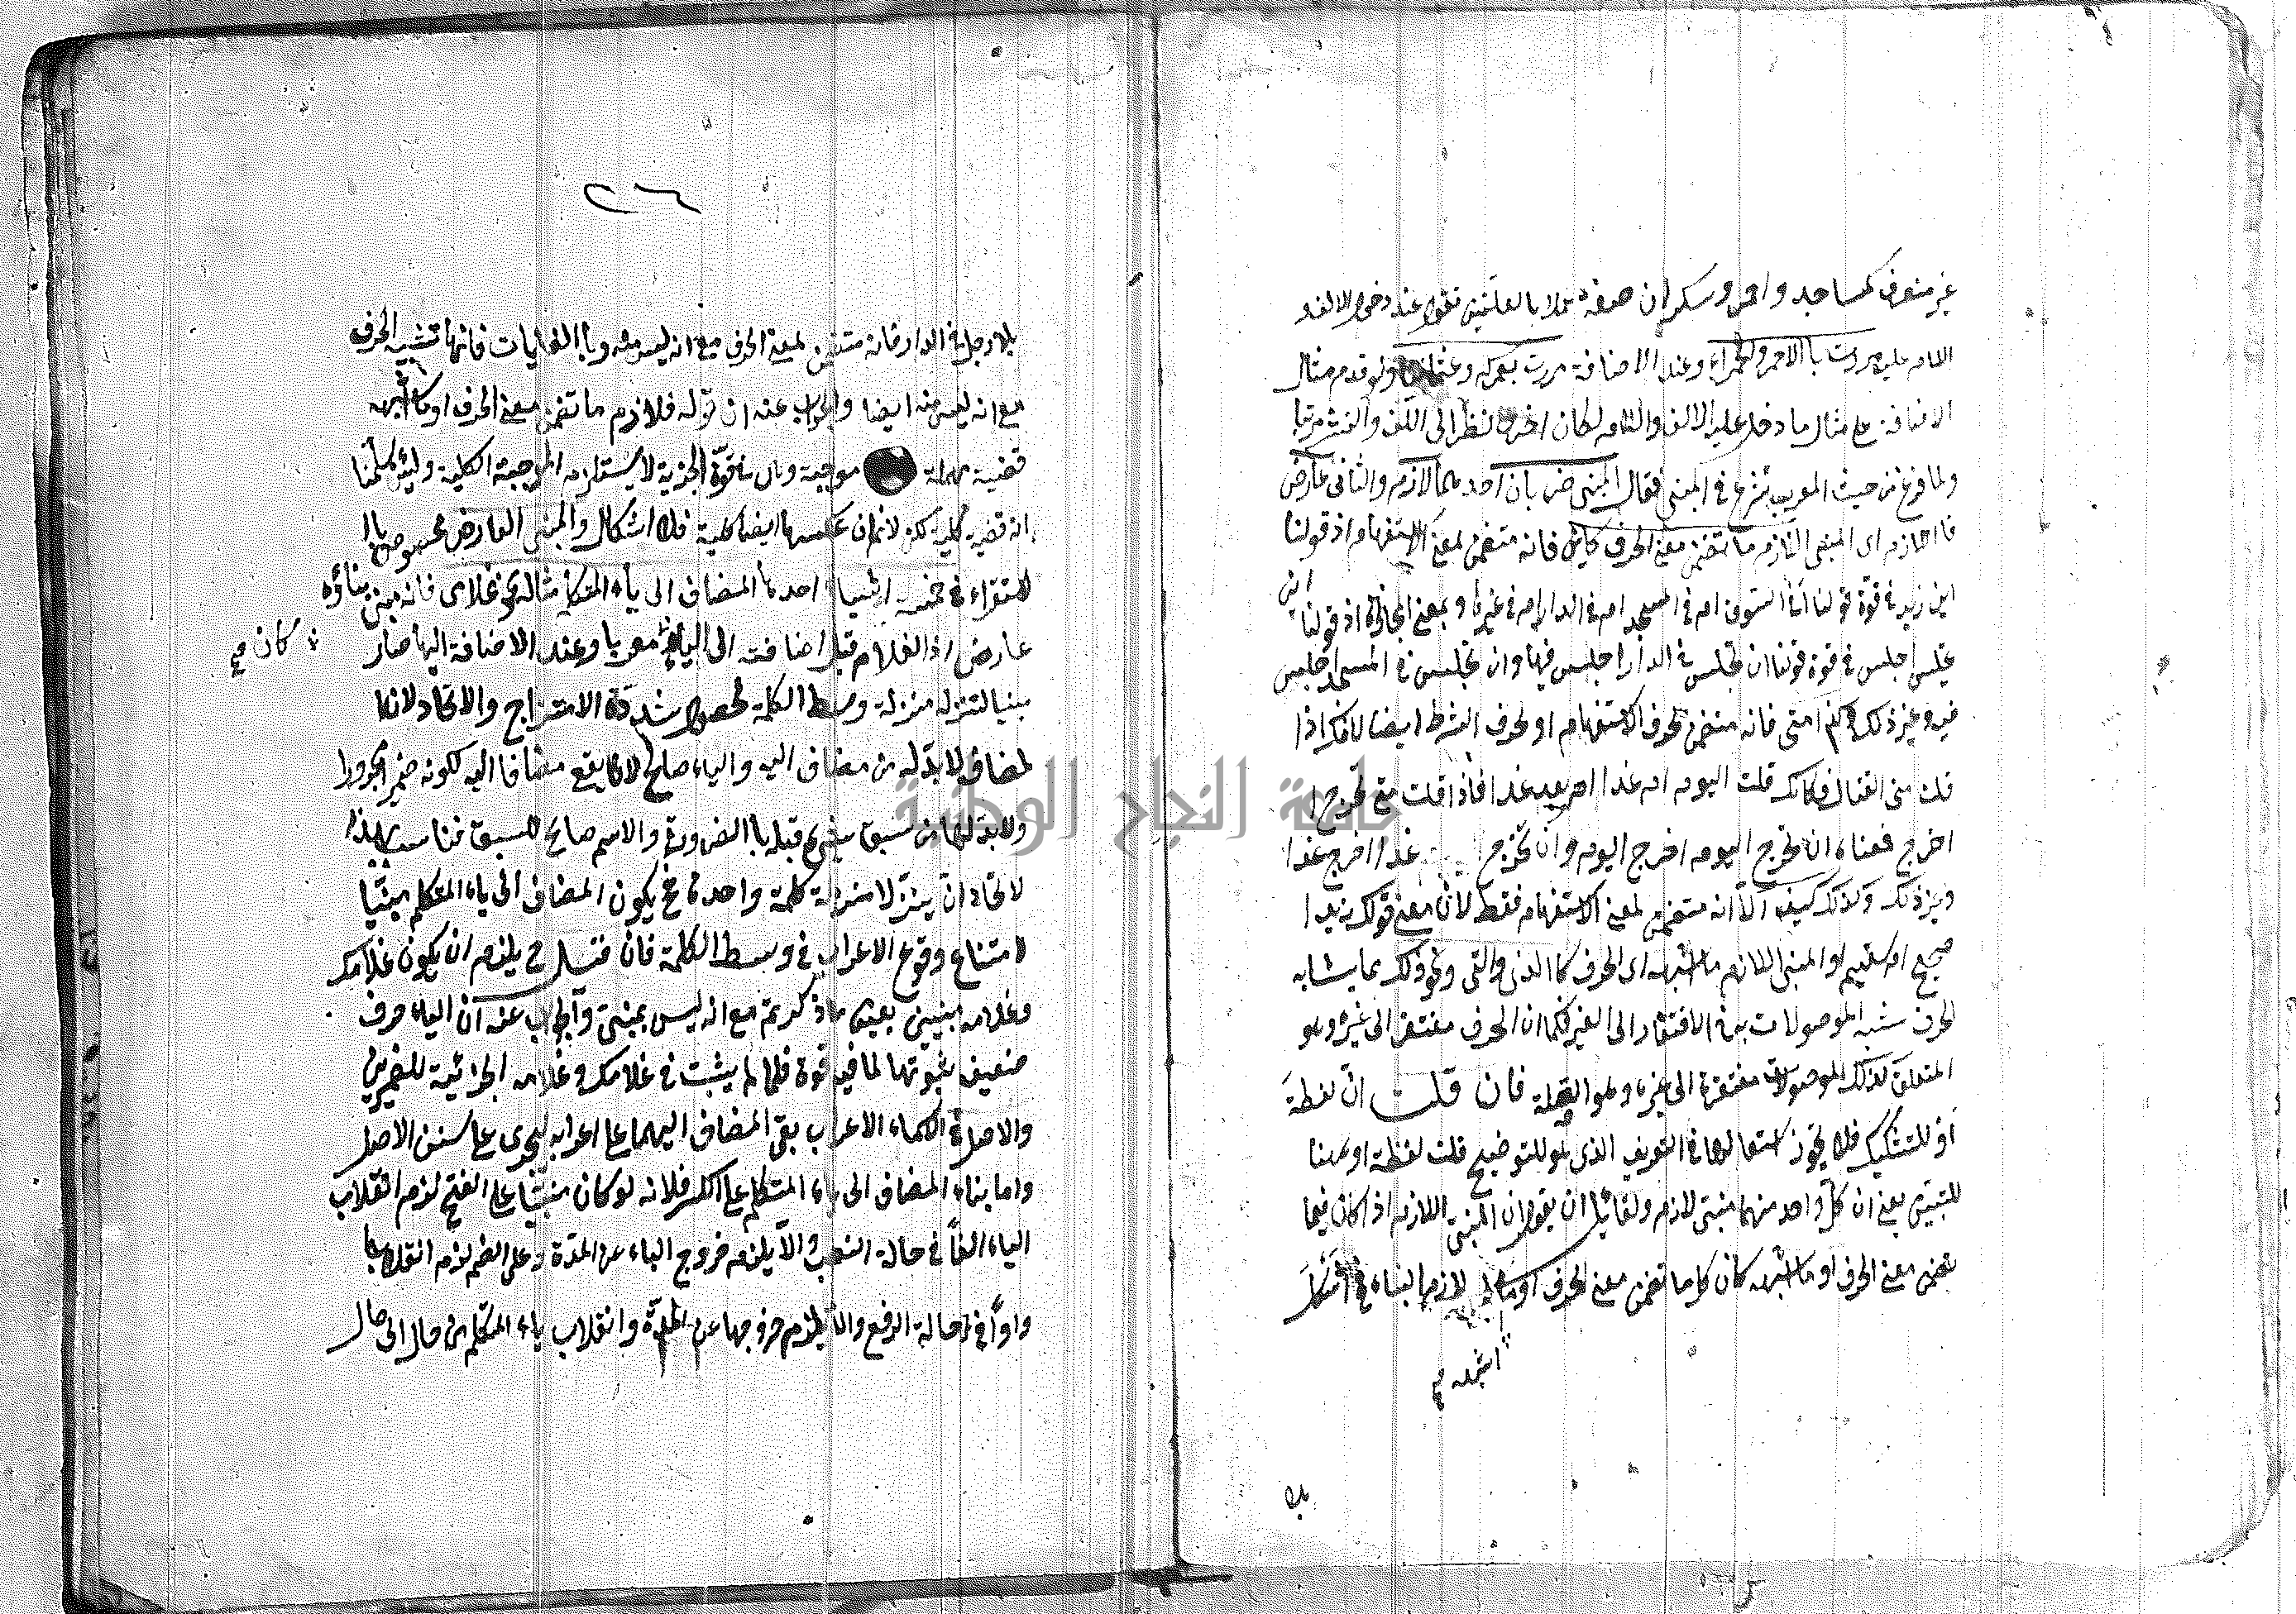 غير منصرف كمساجد واحمر وسكران صفة مثلا بالعلتين تقول عند دخول الالف
اللام عليه مررت بالاحمر والحمراء وعند الاضافة مررت بعمركم وعثماننا ولو قدم مثال
الاضافة على مثال ما دخل عليه الالف واللام لكان اخرى نظرا الى اللف والنشر مرتبا
ولما فرغ من حيث المعرب شرع في المبنى فقال المبنى ضربان احدهما لازم والثاني عارض
فاللازم اى المبنى اللازم ما تضمن معنى الحرف كاين فانه متضمن لمعنى الاستفهام اذ قولنا
اين زيد في قوة قولنا أفى السوق ام في المسجد ام في الدار ام في غيرها وبمعنى المجازاة اذ قولنا اين
تجلس اجلس في قوة قولنا ان تجلس في الدار اجلس فيها وان تجلس في المسجد اجلس
فيه وغير ذلك متى فانه متضمن لحرف الاستفهام او لحرف الشرط ايضا لانك اذا
قلت متى القتال فكانك قلت اليوم ام غدا ام بعد غد فاذا قلت متى تخرج
اخرج فمعناه ان تخرج اليوم اخرج اليوم وان تخرج غدا اخرج غدا
وغير ذلك وكذلك كيف الا انه متضمن لمعنى الاستفهام فقط لان معنى قولك زيد
صحيح ام سقيم او المبنى اللازم ما اشبهه اى الحرف كالذى والتى ونحو ذلك مما يشابه
الحرف شبه الموصولات به في الافتقار الى الغير فكما ان الحرف مفتقر الى غيره وهو
المتعلق كذلك الموصولات مفتقرة الى غيره وهو الصلة فان قلت ان لفظة
او للتشكيك فلا يجوز استعمالها في التعريف الذى هو للتوضيح قلت لفظة او ههنا
للتبيين يعنى ان كل واحد منهما مبنى لازم ولقائل ان يقول ان المبنى اللازم اذا كان فيما
تضمن معنى الحرف او ما اشبهه كان كل ما تضمن معنى الحرف او ما لازم البناء
اشبهه صح
بلا
٢٦
بلا رجل في الدار فانه متضمن لمعنى الحرف مع انه ليس منه وبا الغايات فانها تشبه الحرف
مع انه ليس منه ايضا والجواب عنه ان قوله فلازم ما تضمن معنى الحرف او ما اشبهه
قضية مهملة موجبة وهى في قوة الجزئية لا يستلزم الموجبة الكلية ولئن سلمنا
انه قضية كلية لكن لا نم ان عكسها ايضا كلية فلا اشكال والمبنى العارض محصور با
لاستقراء في خمسة اشياء احدها المضاف الى ياء المتكلم مثاله نحو غلامى فانه مبنى بناؤه
عارض اذ الغلام قبل اضافته الى الياء معربا وعند الاضافة اليها صار
كان صح
مبنيا لتنزله منزلة وسط الكلمة لحصول شدة الامتزاج والاتحاد لان ا
لمضاف لا بد له من مضاف اليه والياء صالح لان يقع مضافا اليه لكونه ضميرا مجرورا
ولا بد لها من سبق شئ قبله بالضرورة والاسم صالح للسبق فناسب لهذا
لاتحاد ان ينزلا منزلة كلمة واحدة فح يكون المضاف الى ياء المتكلم مبنيا
لامتناع وقوع الاعراب في وسط الكلمة فان قيل فح يلزم ان يكون غلامك
وغلامه مبنيين بعين ما ذكرتم مع انه ليس بمبنى والجواب عنه ان الياء حرف
ضعيف ثبوتها لما فيه قوة فلما لم يثبت في غلامك وغلامه الجزئية للضميرين
والاصل في الاسماء الاعراب بقى المضاف اليهما على اعرابه ليجرى على سنن الاصل
واما بناء المضاف الى ياء المتكلم على الكسر فلانه لو كان مبنيا على الفتح لزم انقلاب
الياء الفا في حالة النصب والا يلزم خروج الياء عن المدة وعلى الضم لزم انقلابها
واوا في حالة الرفع والا يلزم خروجها عن المدة وانقلاب ياء المتكلم من حال الى حال
جامعة النجاح الوطنية